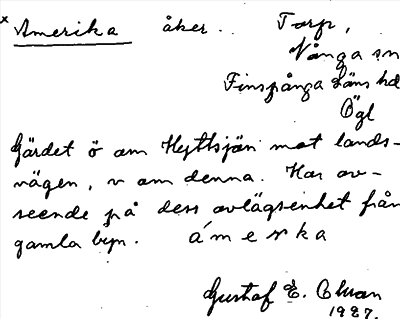 x Amerika åker. Torp,
Vånga sn
Finspånga Läns hd
Ögl
Gärdet ö om Hyttsjön mot lands-
vägen, v om denna. Har av-
seende på dess avlägsenhet från
gamla byn. ámerka
Gustaf E.
1927.